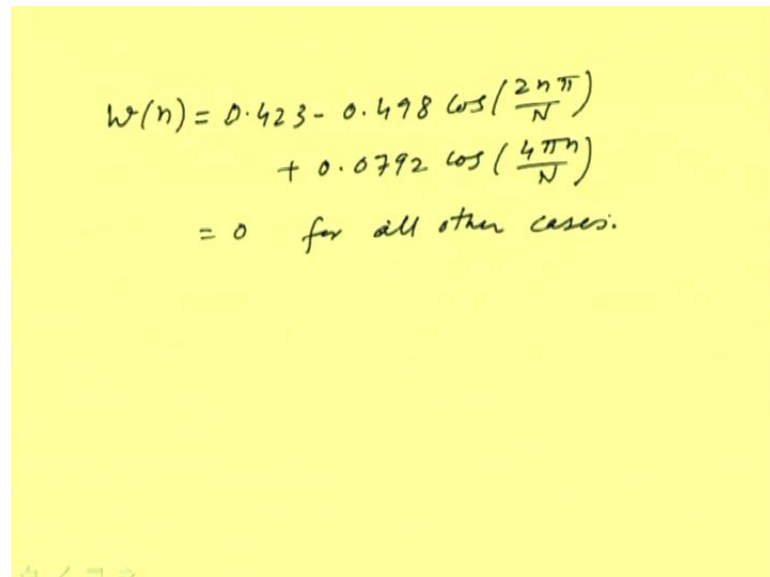 W(n) = 0.423 - 0.498 cos(2nπ/N)
+ 0.0792 cos(4πn/N)
= 0 for all other cases.